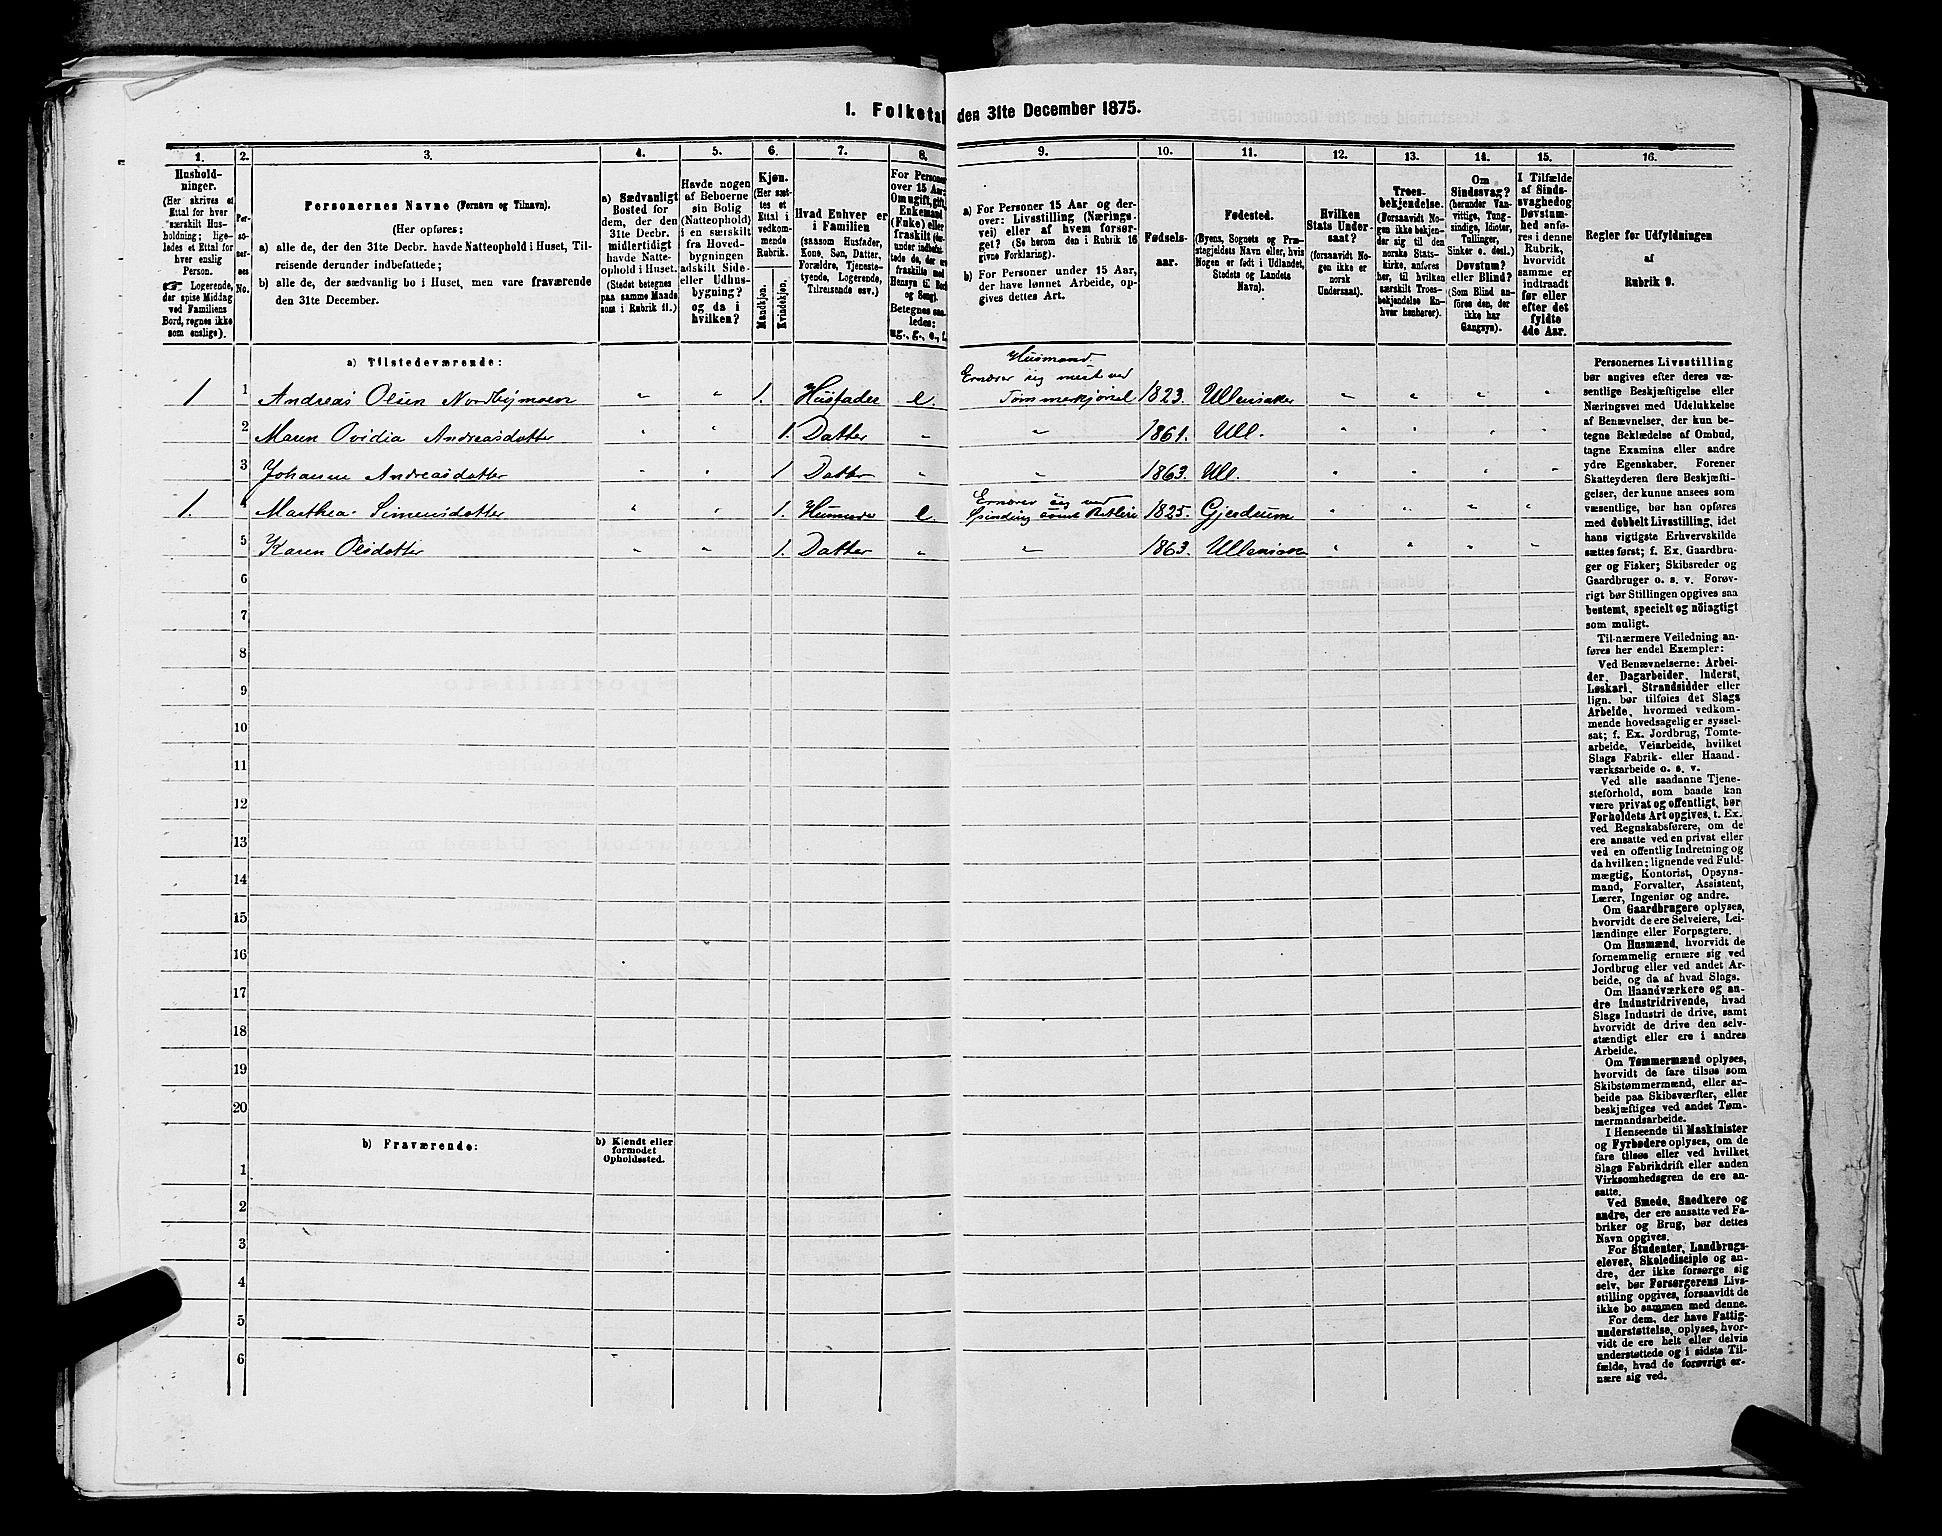 1. Folketal den 31te December 1875.
1. 2. 3. 4. 5. 6. 7. 8. 9. 10. 11. 12. 13. 14. 15. 16.
Hushold-
ninger.
(Her skrives et
Ettal for hver
særskilt Hus-
holdning; lige-
ledes et Ettal for
hver enslig
Person.
☛ Logerende,
der spise Middag
ved Familiens
Bord, regnes ikke
som enslige).
Per-
so-
ner-
nes
No.
Personernes Navne (Fornavn og Tilnavn).
(Her opføres:
a) alle de, der den 31te Decbr. havde Natteophold i Huset, Til-
reisende derunder indbefattede;
b) alle de, der sædvanlig bo i Huset, men vare fraværende
den 31te December.
a) Sædvanligt
Bosted for
dem, der den
31te Decbr.
midlertidigt
havde Natte-
ophold i Huset.
(Stedet betegnes
paa samme Maade
som i Rubrik 11.)
Havde nogen
af Beboerne
sin Bolig
(Natteophold)
i en særskilt
fra Hoved-
bygningen
adskilt Side-
eller Udhus-
bygning?
og da i
hvilken?
Kjøn.
(Her sæt-
tes et
Ettal i
vedkom-
mende
Rubrik.
Mandkjøn.
Kvindekjøn.
Hvad Enhver er
i Familien
(saasom Husfader,
Kone, Søn, Datter,
Forældre, Tjeneste-
tyende, Logerende,
Tilreisende osv.)
For Personer
over 15 Aar:
Om ugift, gift,
Enkemand
(Fuke) eller
fraskilt
Betegnes saa-
ledes:
ug., g., e., f.
a) For Personer 15 Aar og der-
over: Livsstilling (Nærings-
vei) eller af hvem forsør-
get? (Se herom den i Rubrik 16
givne Forklaring).
b) For Personer under 15 Aar,
der have lønnet Arbeide, op-
gives dettes Art.
Fødsels-
aar.
Fødested.
(Byens, Sognets og Præ-
stegjeldets Navn eller, hvis
Nogen er født i Udlandet,
Stedets og Landets
Navn).
Hvilken
Stats Under-
saat?
(forsaavidt No-
gen ikke er
norsk
Undersaat).
Troes-
bekjendelse.
(Forsaavidt No-
gen ikke bekjen-
der sig til den
norske Stats-
kirke, anføres
her, til hvilken
særskilt Troes-
bekjendelse En-
hver henhører).
Om
Sindssvag?
(herunder Van-
vittige, Tung-
sindige, Idioter,
Tullinger,
Sinker o. desl.).
Døvstum?
eller Blind?
(Som Blind an-
føres den, der
ikke har
Gangsyn).
I Tilfælde
af Sinds-
svaghed og
Døvstum-
hed anfø-
res i denne
Rubrik,
hvorvidt
samme er
indtraadt
før eller
efter det
fyldte
4de Aar.
Regler for Udfyldningen
af
Rubrik 9.
a) Tilstedeværende:
Husmand.
Ernærer sig mest ved
1 1 Andreas Olsen Nordbymoen " " 1. Husfader e. Tømmerkjørsel 1823. Ullensaker " " " "
2 Maren Ovidia Andreasdatter " " 1. Datter " " 1861. Ull. " " " "
3 Johanne Andreasdatter " " 1 Datter " " 1863. Ull. " " " "
Ernærer sig ved
1. 4 Marthea Simensdatter " " 1. e Spinding 1825. Gjerdrum " " " "
5 Karen Olsdatter " " 1. Datter " " 1863. Ullensak " " " "
6
7
8
9
10
11
12
13
14
15
16
17
18
19
20
b) Fraværende:
b) Kjendt eller
formodet
Opholdssted.
1
2
3
4
5
6
Personernes Livsstilling
bør angives efter deres væ-
sentlige Beskjæftigelse eller
Næringsvei med Udelukkelse
af Benævnelser, der kun be-
tegne Beklædelse af Ombud,
tagne Examina eller andre
ydre Egenskaber. Forener
Skatteyderen flere Beskjæfti-
gelser, der kunne ansees som
væsentlige, bør han opføres
med dobbelt Livsstilling, idet
hans vigtigste Erhvervskilde
sættes først; f. Ex. Gaardbru-
ger og Fisker; Skibsreder og
Gaardbruger o. s. v. Forøv-
rigt bør Stillingen opgives saa
bestemt, specielt og nöiagtigt
som muligt.
Til nærmere Veiledning an-
føres her endel Exempler:
Ved Benævnelserne: Arbei-
der, Dagarbeider, Inderst,
Løskarl, Strandsidder eller
lign. bør tilføies det Slags
Arbeide, hvormed vedkom-
mende hovedsagelig er syssel-
sat; f. Ex. Jordbrug, Tomte-
arbeide, Veiarbeide, hvilket
Slags Fabrik- eller Haand-
værksarbeide o. s. v.
Ved alle saadanne Tjene-
steforhold, som baade kan
være privat og offentligt, bør
Forholdets Art opgives, t. Ex.
ved Regnskabsførere, om de
ere ansatte ved en privat eller
ved en offentlig Indretning og
da hvilken; lignende ved Fuld-
mægtig, Kontorist, Opsyns-
mand, Forvalter, Assistent,
Lærer, Ingeniør og andre.
Om Gaardbrugere oplyses,
hvorvidt de ere Selveiere, Lei-
lændinge eller Forpagtere.
Om Husmænd, hvorvidt de
fornemmelig ernære sig ved
Jordbrug eller ved andet Ar-
beide, og da af hvad Slags.
Om Haandværkere og an-
dre Industridrivende, hvad
Slags Industri de drive, samt
hvorvidt de drive den selv-
stændigt eller ere i andres
Arbeide.
Om Tømmermænd oplyses,
hvorvidt de fare tilsøs som
Skibstømmermænd, eller ar-
beide paa Skibsværfter, eller
beskjæftiges ved andet Tøm-
mermandsarbeide.
I Henseende til Maskinister
og Fyrbødere oplyses, om de
fare tilsøs eller ved hvilket
Slags Fabrikdrift eller anden
Virksomhedsgren de ere an-
satte.
Ved Smede, Snedkere og
andre, der ere ansatte ved Fa-
briker og Brug, bør dettes
Navn opgives.
For Studenter, Landbrugs-
elever, Skoledisciple og an-
dre, der ikke forsørge sig
selv, bør Forsørgerens Livs-
stilling opgives, forsaavidt de
ikke bo sammen med denne.
For dem, der have Fattig-
understøttelse, oplyses, hvor-
vidt de ere helt eller delvis
understøttede og i sidste Til-
fælde, hvad de forøvrigt er-
nære sig ved.